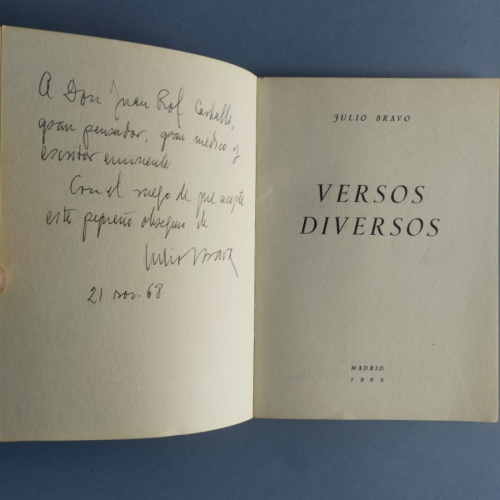 A Don Juan Rof Carballo,
gran pensador, gran médico y
escritor eminente.
Con el ruego de que acepte
este pequeño obsequio de
Julio Bravo
21 nov. 68
JULIO BRAVO
VERSOS
DIVERSOS
MADRID